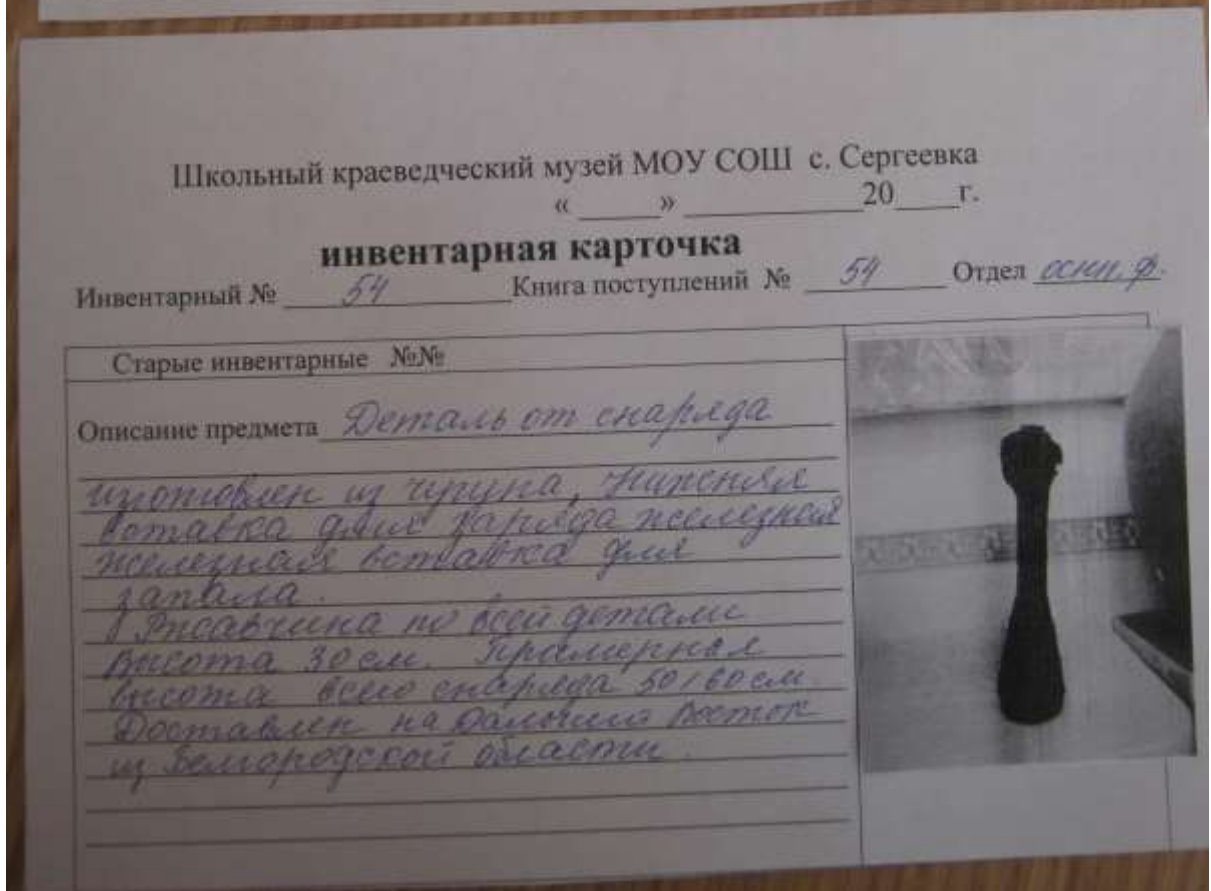 Школьный краеведческий музей МОУ СОШ с. Сергеевка
« _____ » ____________20____г.
инвентарная карточка
Инвентарный № 54 Книга поступлений № 54 Отдел осн. ф.
Старые инвентарные №№
Описание предмета Деталь от снаряда
изготовлен из чугуна, Нижняя
вставка для заряда железная
железная вставка для
запала.
Ржавчина по всей детали
Высота 30 см. Примерная
высота всего снаряда 50/60 см.
Доставлен на Дальний Восток
из Белгородской области.